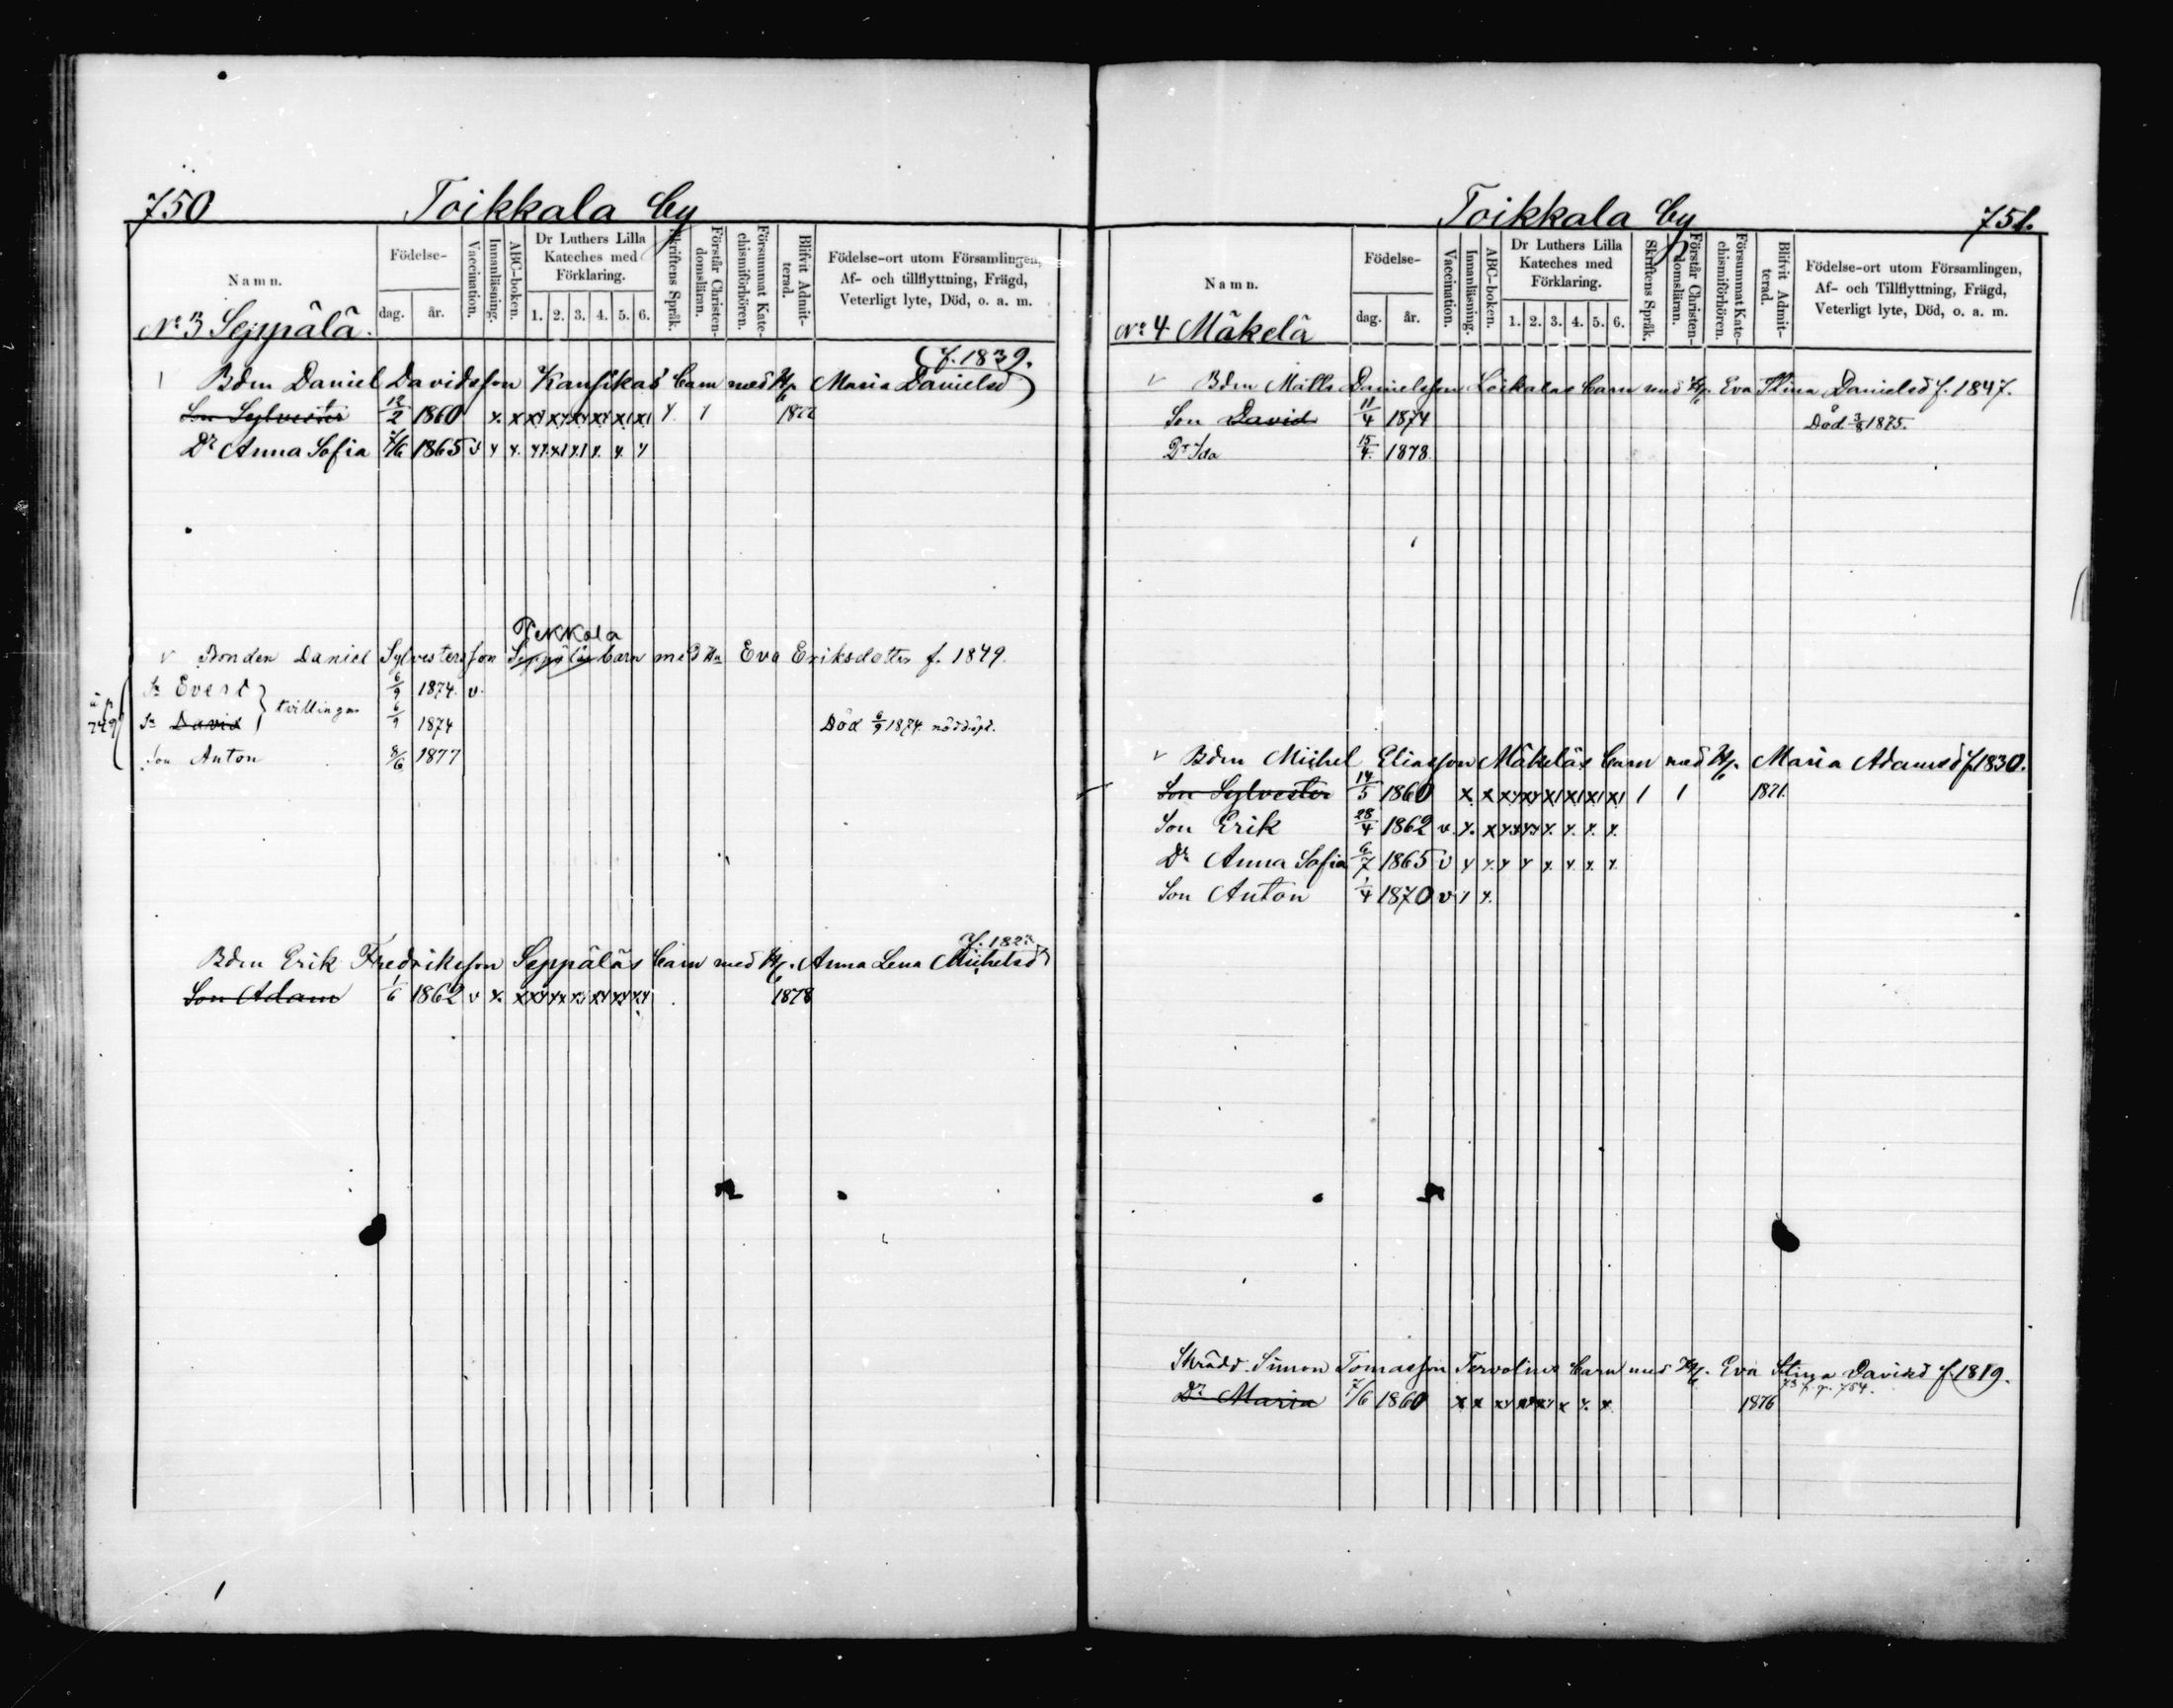 750 Toikkala by
Namn. Födelse- dag. år. Vaccination. Innanläsning. ABC-boken. Dr Luthers Lilla Kateches med Förklaring. 1. 2. 3. 4. 5. 6. Skriftens Språk. Förstår Christendomsläran. Försummat Katechismiförhören. Blifvit Admitterad. Födelse-ort utom Församlingen, Af- och tillflyttning, Frägd, Veterligt lyte, Död, o. a. m.
No 3 Seppälä.
(f. 1839.
Bdm Daniel Davidsson Kansikas barn med H. Maria Danielsd)
Son Sylvester 12/2 1860 x. x xy xy xy xy x1 x1 y. 1
Dr Anna Sofia 1865
Pekkola
v Bonden Daniel Sylvestersson Seppäläs barn med Hu Eva Eriksdotter f. 1849.
Sn Evert } tvillingar 6/9 1874. v.
Sn David 6/9 1874 Död 6/9 1874. nöddöpt.
749
Son Anton 8/6 1877
Bdm Erik Fredriksson Seppäläs barn med H. Anna Lena Michelsd
Son Adam 1/6 1862 v x. 1878
Toikkala by 751.
Namn. Födelse- dag. år. Vaccination. Innanläsning. ABC-boken. Dr Luthers Lilla Kateches med Förklaring. 1. 2. 3. 4. 5. 6. Skriftens Språk. Förstår Christendomsläran. Försummat Katechismiförhören. Blifvit Admitterad. Födelse-ort utom Församlingen, Af- och Tillflyttning, Frägd, Veterligt lyte, Död, o. a. m.
No 4 Mäkelä
v Bdm Matts Danielsson Loikalas barn med H. Eva Stina Danielsd f. 1847.
Son David 11/4 1874 Död 3/8 1875.
Dr Ida 15/4. 1878.
v Bdm Michel Eliasson Mäkeläs barn med H. Maria Adamsd f. 1830.
Son Sylvester 14/5 1860 x x xy xy x1 x1 x1 x1 1 1
Son Erik 28/4 1862 v.
Dr Anna Sofia 6/7 1865 v
Son Anton 1/4 1870 v 1 x.
Skrädd. Simon Tomasson Tervolins barn med H. Eva Stina Davisd f. 1819.
Dr Maria 7/6 1860 1876